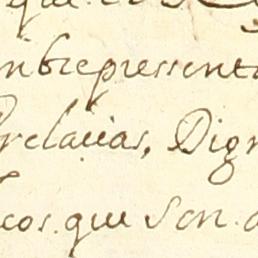 que
mbrepressenta
Prelacias, Dign
cos. que son